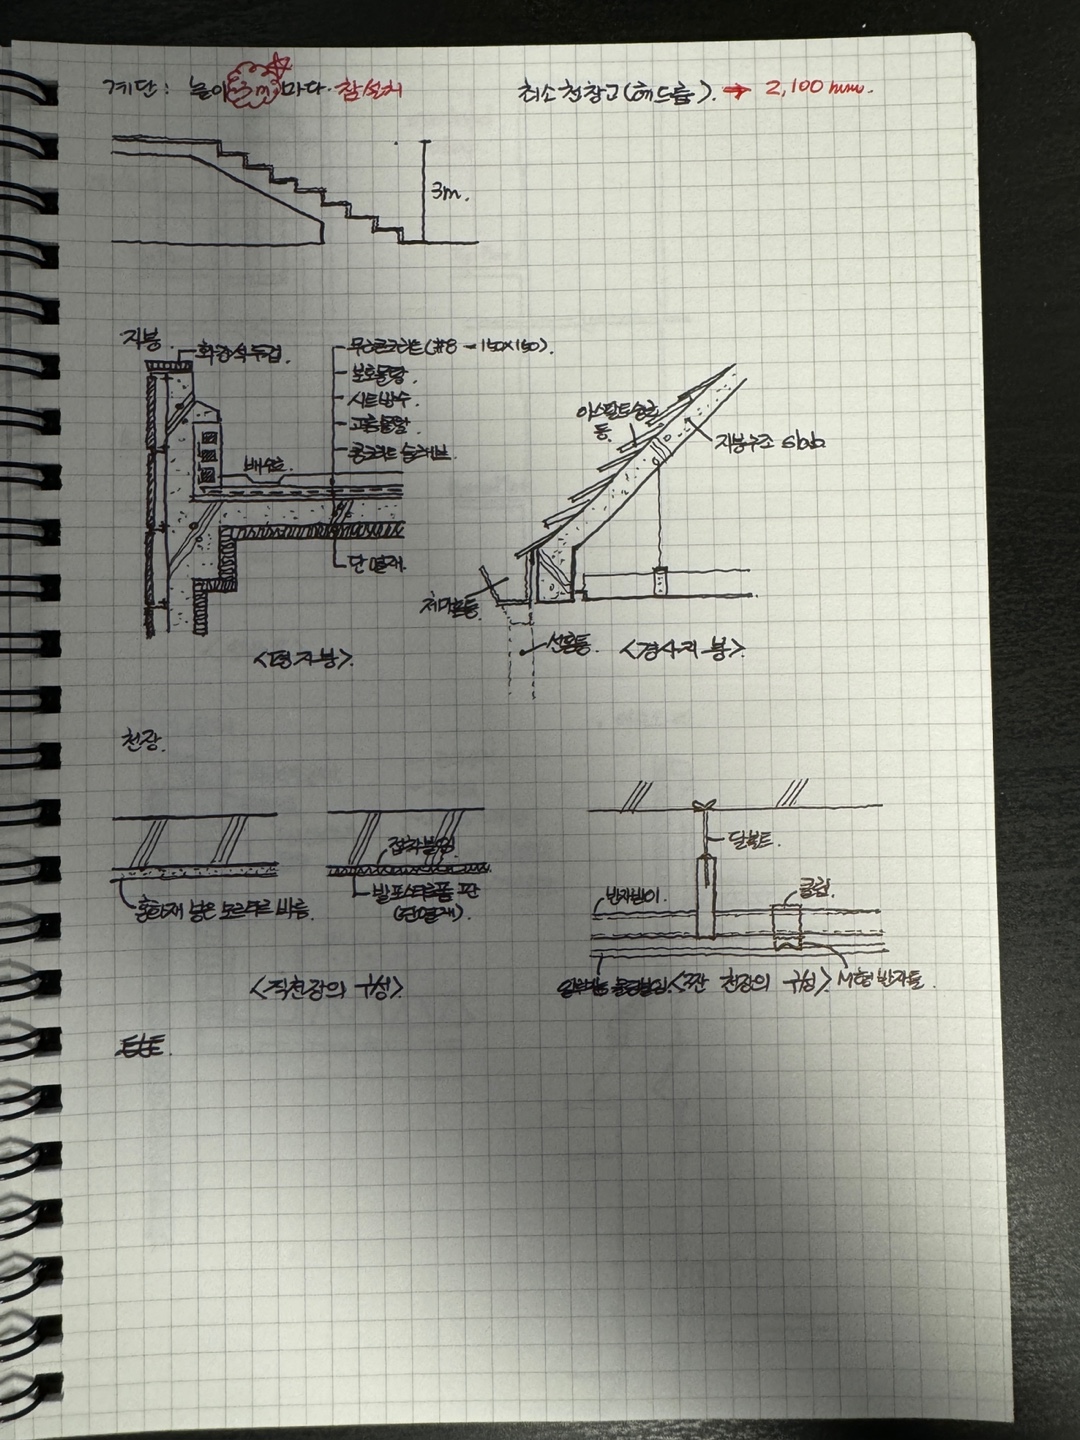 계단 : 높이 3m 마다 참설치
최소천장고(헤드룸). → 2,100mm.
3m.
지붕.
화강석두겁.
무근콘크리트(#8 - 150x150).
보호몰탈.
시트방수.
고름몰탈
콘크리트 슬래브
배수로.
단열재.
<평지붕>.
아스팔트슁글
지붕구조 slab
처마홈통.
선홈통.
<경사지붕>.
천장.
접착붙임.
발포스티로폼 판
(단열재).
혼화재 넣은 모르타르 바름.
<직천장의 구성>.
달볼트.
반자받이.
클립.
M형 반자틀.
<2중 천장의 구성>.